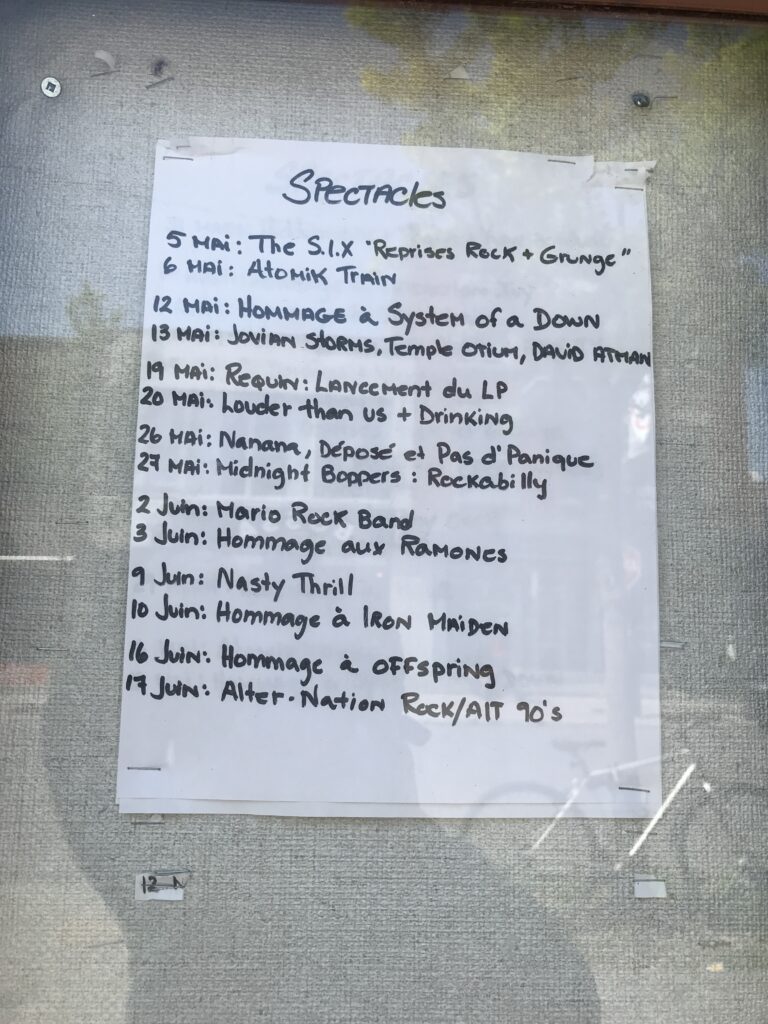 Spectacles
5 Mai: The S.I.X "Reprises Rock + Grunge"
6 Mai: Atomik Train
12 Mai: Hommage à System of a Down
13 Mai: Jovian Storms, Temple Otium, David Atman
19 Mai: Requin: Lancement du LP
20 Mai: Louder than us + Drinking
26 Mai: Nanana, Déposé et Pas d'Panique
27 Mai: Midnight Boppers : Rockabilly
2 Juin: Mario Rock Band
3 Juin: Hommage aux Ramones
9 Juin: Nasty Thrill
10 Juin: Hommage à Iron Maiden
16 Juin: Hommage à Offspring
17 Juin: Alter-Nation Rock/Alt 90's
12